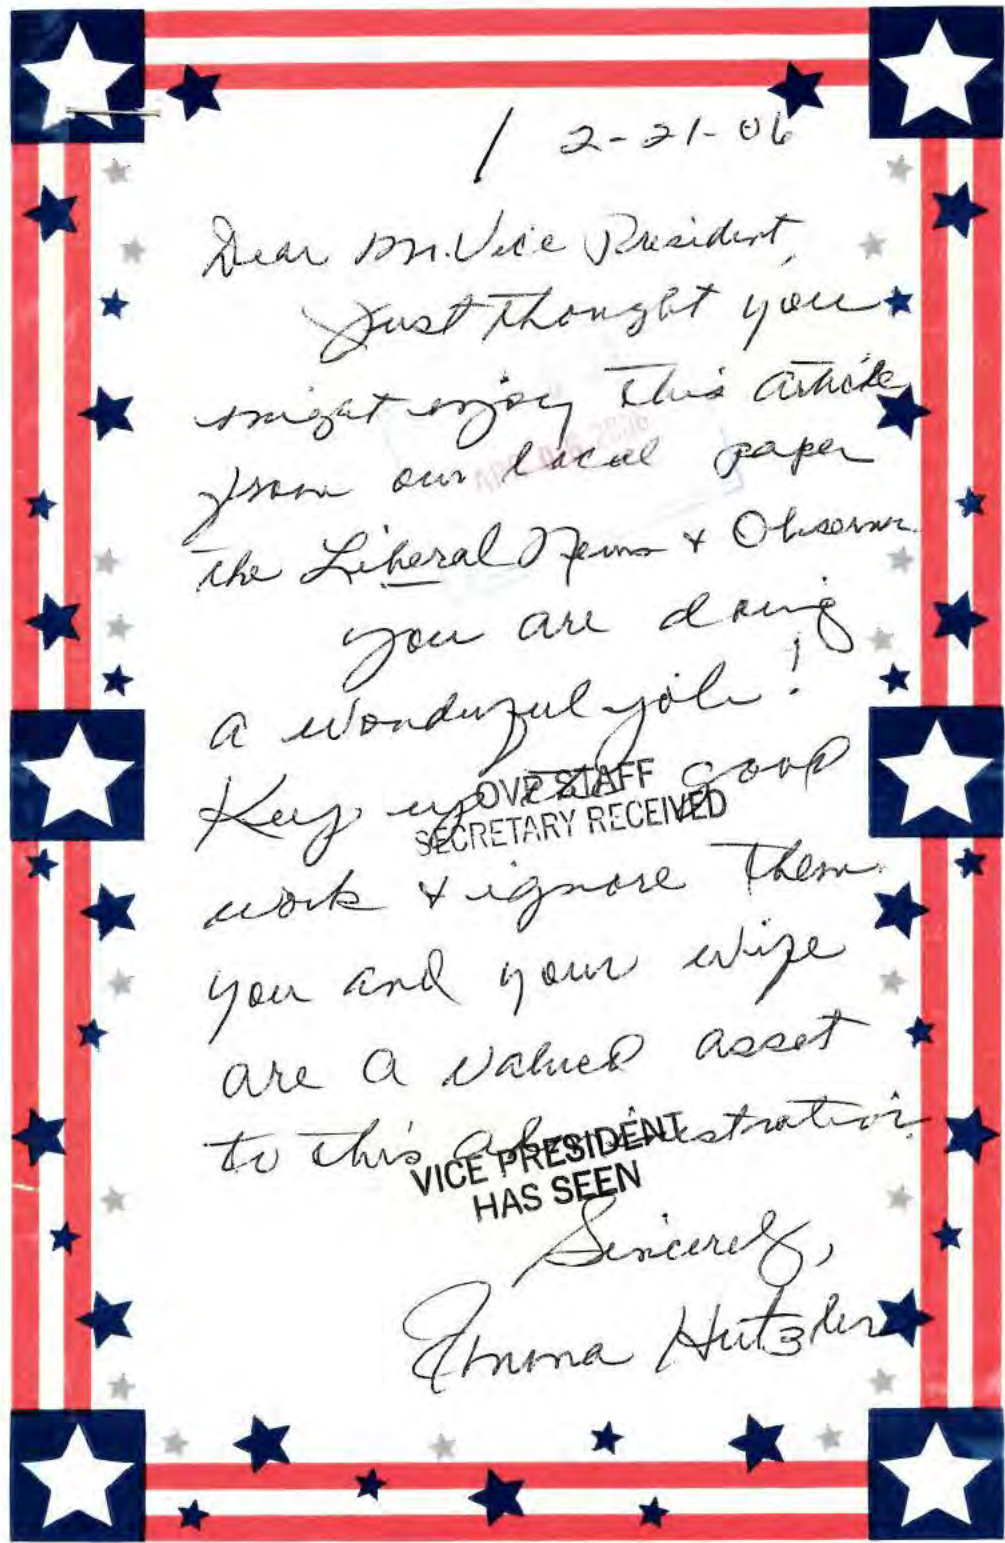 / 2-21-06
Dear Mr. Vice President,
Just thought you
might enjoy this article
from our local paper
the Liberal News & Observer.
you are doing
a wonderful job!
Keep up the good
OVP STAFF
SECRETARY RECEIVED
work & ignore them.
you and your wife
are a valued asset
to this administration.
VICE PRESIDENT
HAS SEEN
Sincerely,
Emma Hutzler